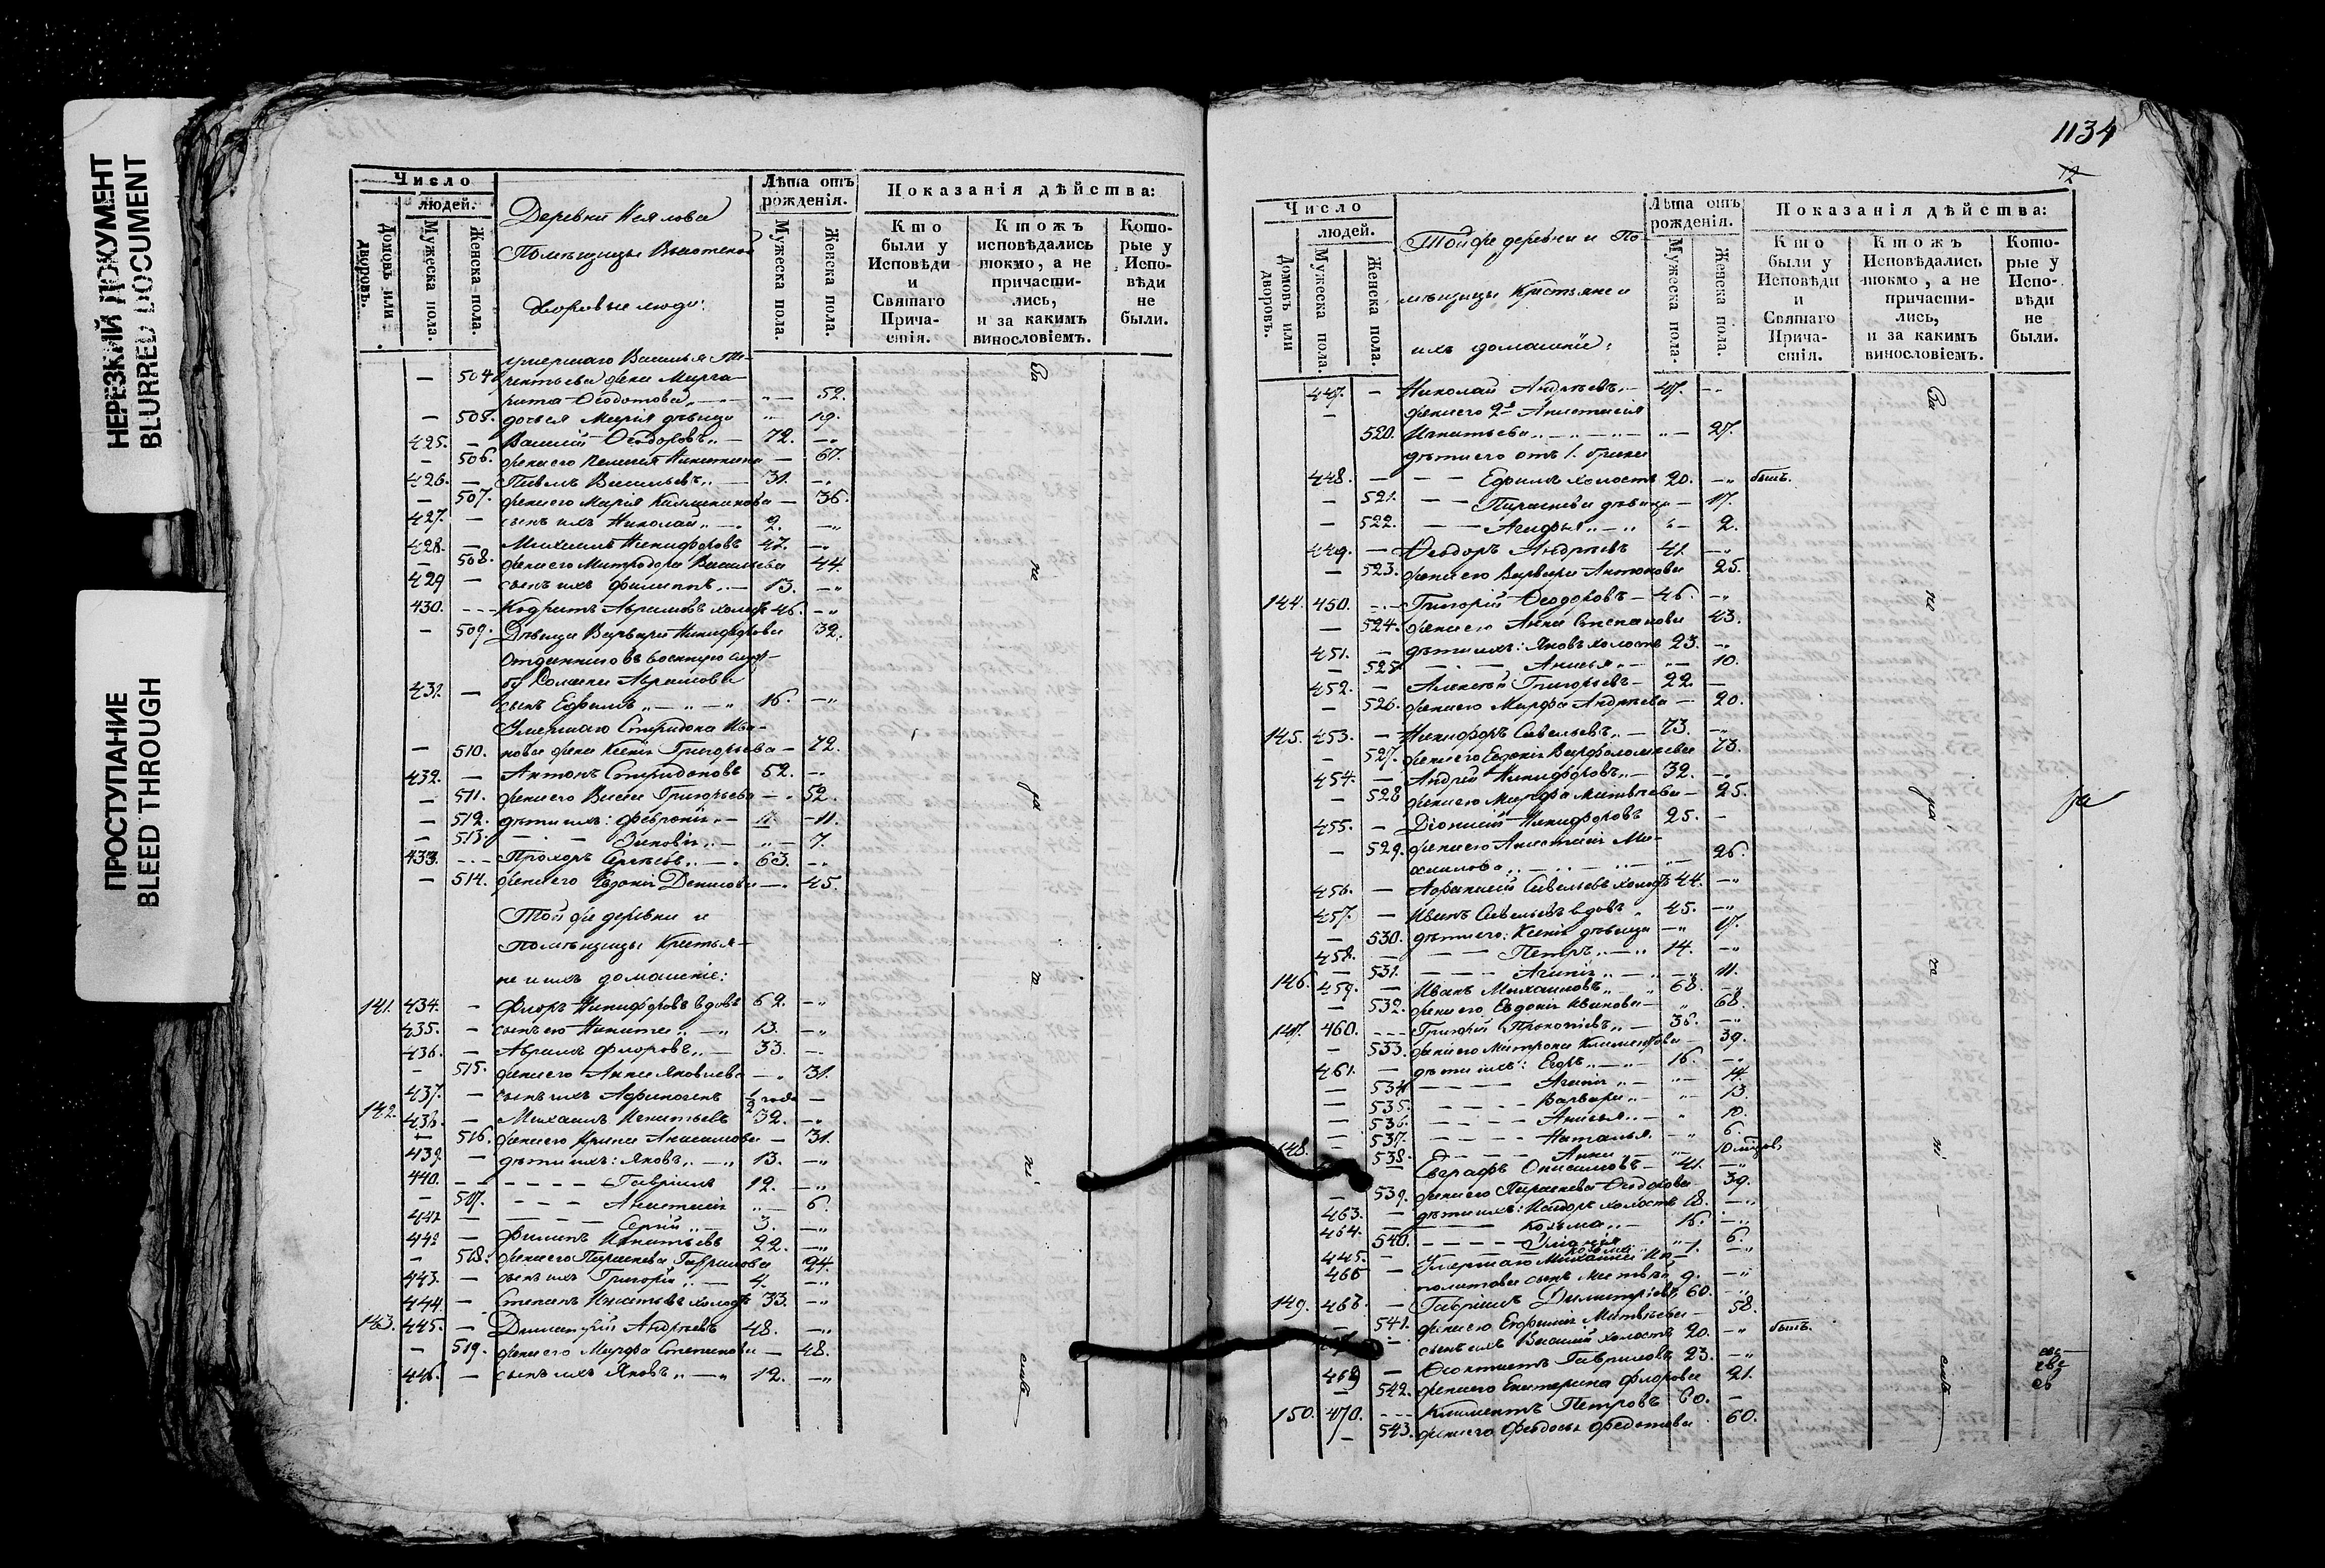 НЕРЕЗКИЙ ДОКУМЕНТ
BLURRED DOCUMENT
ПРОСТУПАНИЕ
BLEED THROUGH
Число
людей.
Домовъ или дворовъ.
Мужеска пола.
Женска пола.
Деревни
Помѣщицы
Дворовые люди:
Лѣта отъ рожденія.
Мужеска пола.
Женска пола.
Показанія дѣйства:
Кто были у Исповѣди и Святаго Причастія.
Ктожъ исповѣдались токмо, а не причастились, и за какимъ винословіемъ.
Которые у Исповѣди не были.
умершаго Василья
504. жена Марга-
рита Ѳеодотова 52.
505. дочь ея Марія дѣвица 19.
425. Василій Ѳеодоровъ 72.
506. жена его Пелагия Никитина 67.
426. Павелъ Васильевъ 31.
507. жена его Марія 36.
427. сынъ ихъ Николай 2.
428. Михаилъ Никифоровъ 47.
508. жена его Митродора Васильева 44.
429 сынъ ихъ Филиппъ 13.
430. Кодратъ Абрамовъ холостъ 46.
509. Дѣвица Варвара Никифорова 32.
Отданнаго въ военную служ-
бу Абрамова
431. сынъ Ефимъ 16.
Умершаго Спиридона Ива-
510. нова жена Ксенія Григорьева 72.
432. Антонъ Спиридоновъ 52.
511. жена его Васса Григорьева 52.
512. дѣти ихъ: Февронія 11.
513. Зиновія 7.
433. Прохоръ Сергѣевъ 63.
514. жена его Евдокія Денисова 45.
Той же деревни и
Помѣщицы Крестья-
не и ихъ домашніе:
141. 434. Флоръ Никифоровъ вдовъ 62.
435. сынъ его Никита 13.
436. Абрамъ Флоровъ 33.
515. жена его Анна Яковлева 31.
437. сынъ ихъ Афиногенъ 1/2 года
142. 438. Михаилъ Игнатьевъ 32.
516. жена его Ирина 31.
439. дѣти ихъ: Яковъ 13.
440. Гавріилъ 12.
517. Анастасія 6.
441 Сергій 3.
442 Филипъ Игнатьевъ 22.
518. жена его Параскева Гаврилова 24.
443. сынъ ихъ Григорій 4.
444. Степанъ Игнатьевъ холостъ 33.
143. 445. Димитрій Андреевъ 48.
519. жена его Марфа Степанова 48.
446. сынъ ихъ Яковъ 12.
1134
12
Число
людей.
Домовъ или дворовъ.
Мужеска пола.
Женска пола.
Той же деревни и По-
мѣщицы Крестьяне и
ихъ домашніе:
Лѣта отъ рожденія.
Мужеска пола.
Женска пола.
Показанія дѣйства:
Кто были у Исповѣди и Святаго Причастія.
Ктожъ Исповѣдались токмо, а не причастились, и за какимъ винословіемъ.
Которые у Исповѣди не были.
447. Николай Андреевъ 47.
жена его 2я Анастасія
520. Игнатьева 27.
дѣти его отъ 1. брака
448. Ефимъ холостъ 20. былъ.
521. Параскева дѣвица 17.
522. Агафья 2.
449. Ѳеодоръ Андреевъ 41.
523. жена его Варвара Антонова 25.
144. 450. Григорій Ѳеодоровъ 46.
524. жена его Анна Степанова 43.
451. дѣти ихъ: Яковъ холостъ 23.
525 Анисья 10.
452. Алексѣй Григорьевъ 22.
526. жена его Марфа Андреева 20.
145. 453. Никифоръ Савельевъ 73.
527. жена его Евдокія Варфоломѣева 73.
454. Андрей Никифоровъ 32.
528 жена его Марфа Матвѣева 25.
455. Діонисій Никифоровъ 25.
529. жена его Анастасія Ми-
хаилова 26.
456. Афанасій Савельевъ холостъ 44.
457. Иванъ Савельевъ вдовъ 45.
530. дѣти его: Ксенія дѣвица 17.
458. Петръ 14.
531. Агапія 11.
146. 459. Иванъ Михаиловъ 68.
532. жена его Евдокія Иванова 68.
147. 460. Григорій Прокопіевъ 38.
533. жена его Матрона Климентова 39.
461. дѣти ихъ: Егоръ 16.
534 Агапія 14.
535. Варвара 13.
536. Анисья 10.
537. Наталья 6.
538. Анна
148. Евграфъ Онисимовъ 41.
539. жена его Параскева 39.
463. дѣти ихъ: холостъ 18.
464. Козьма 16.
540. 6.
445. 1.
466 Умершаго Михаила Ип-
политова сынъ Матвѣй 9.
149. 468. Гавріилъ Димитріевъ 60.
541. жена его Евфимія Матвѣева 58.
сынъ ихъ Василій холостъ 20. былъ.
469 Гавриловъ 23.
542. жена его Екатерина Флорова 21.
150. 470. Климентъ Петровъ 60.
543. жена его Федосья Федотова 60.